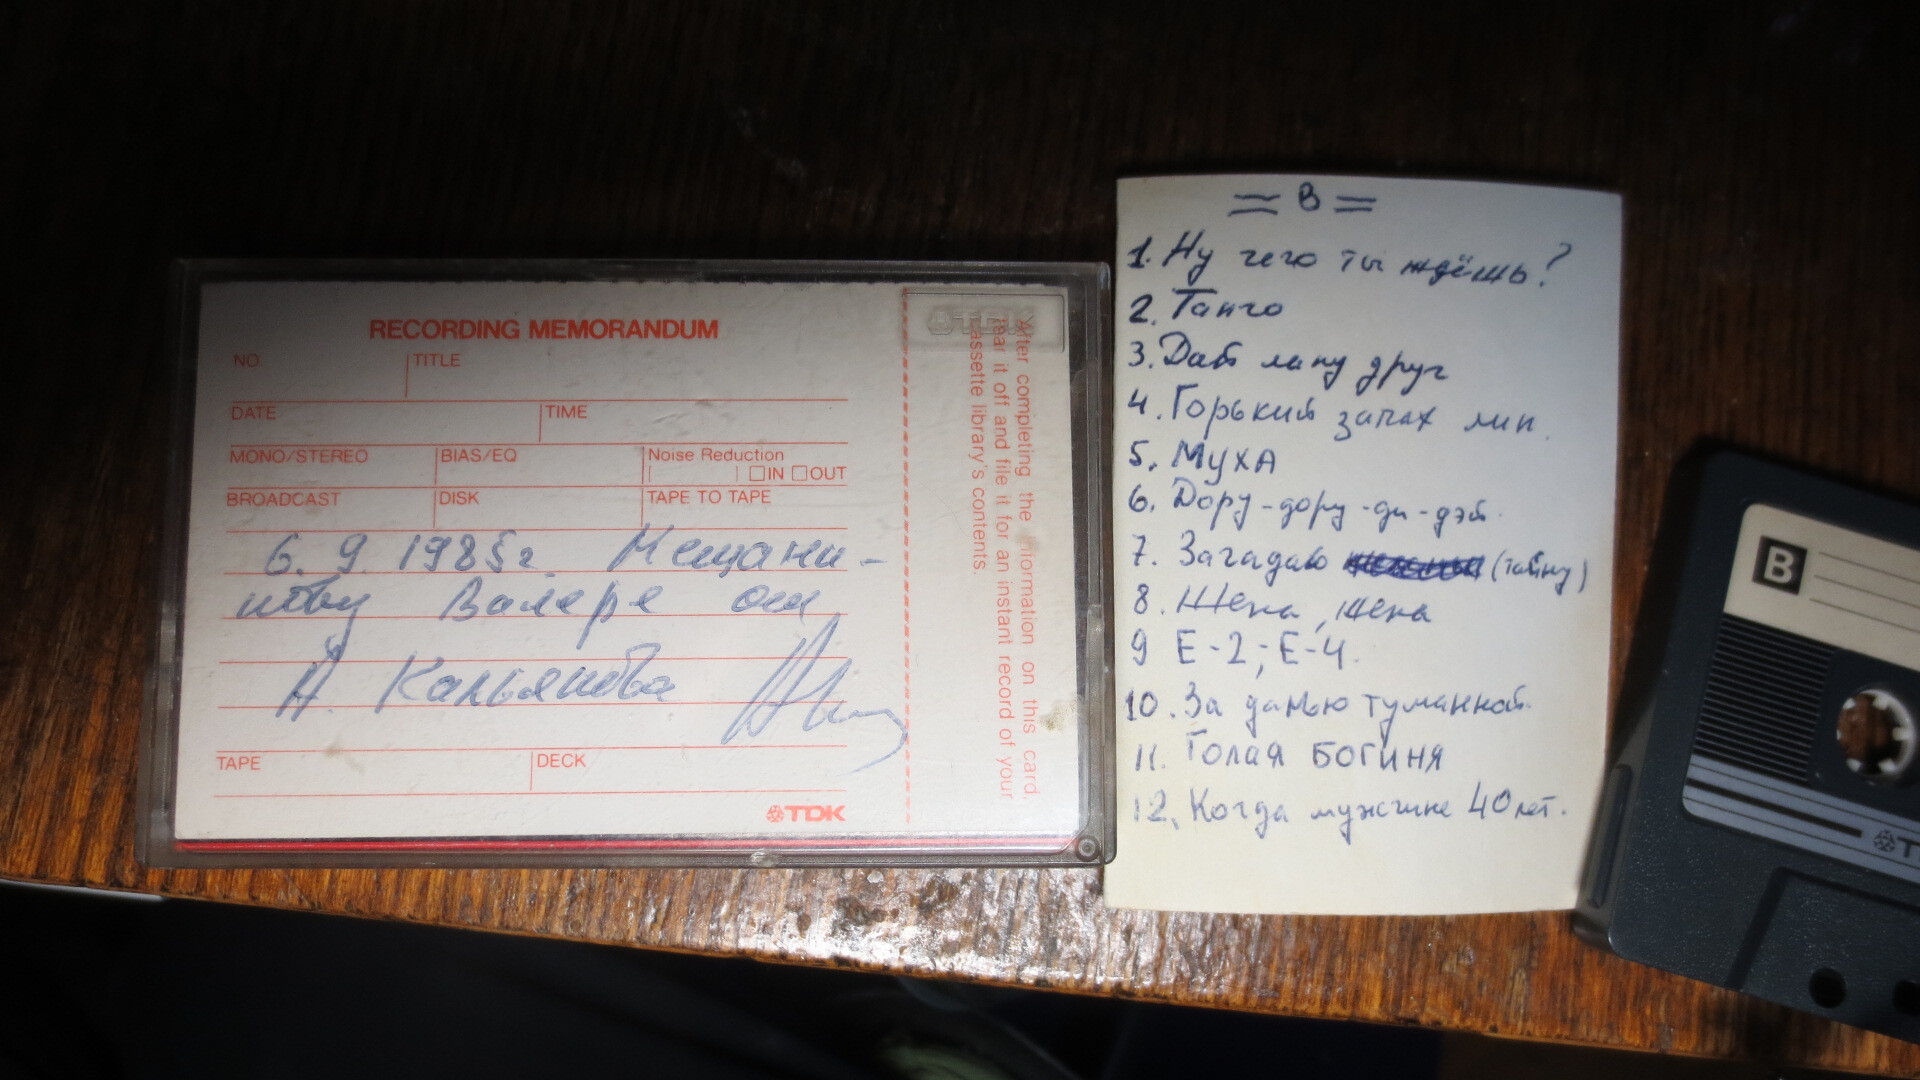 RECORDING MEMORANDUM
NO TITLE
DATE TIME
MONO/STEREO BIAS/EQ Noise Reduction
IN OUT
BROADCAST DISK TAPE TO TAPE
6. 9. 1985г. Мещани-
нову Валере от
А. Каньянова
TAPE DECK
TDK
TDK
After completing the information on this card,
tear it off and file it for an instant record of your
cassette library's contents.
= В =
1. Ну чего ты ждёшь?
2. Танго
3. Дай лапу друг
4. Горький запах лип.
5. МУХА
6. Дору-дору-ди-дэй.
7. Загадаю (тайну)
8. Жена, жена
9 Е-2; Е-4.
10. За далью туманной.
11. Голая БОГИНЯ
12. Когда мужчине 40 лет.
B